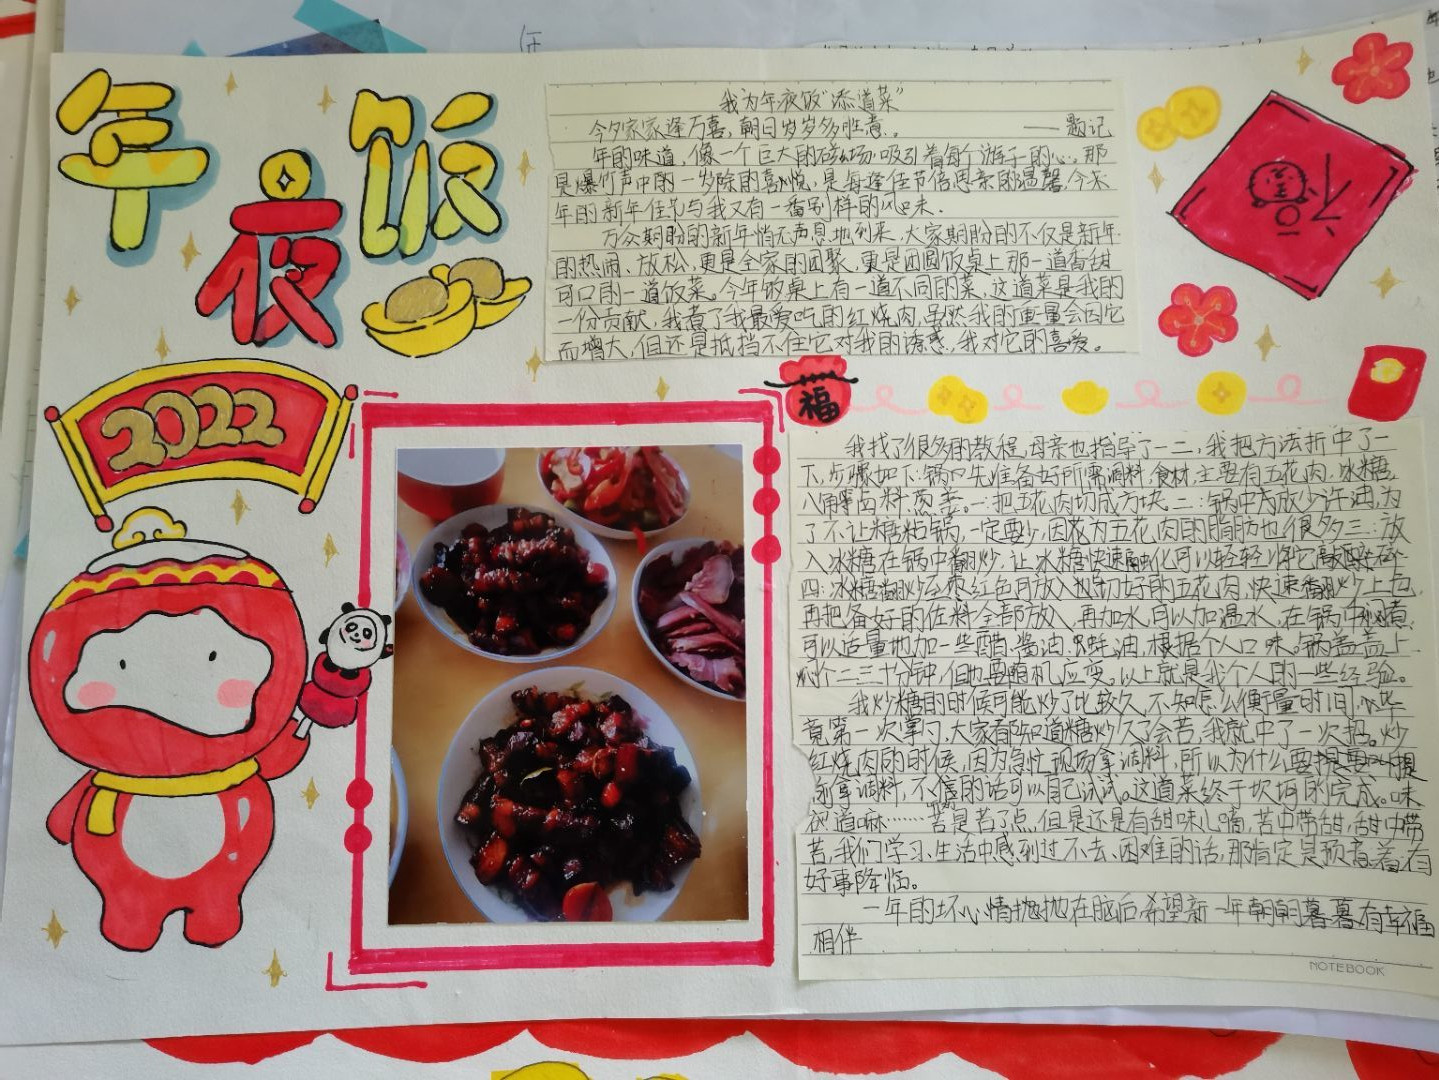 年夜饭
2022
福
我为年夜饭“添道菜”
今夕家家逢万喜,朝日岁岁多胜意。 ——题记
年的味道,像一个巨大的磁场吸引着每个游子的心。那
是爆竹声中的一岁除的喜悦,是每逢佳节倍思亲的温馨,今采
年的新年佳节与我又有一番别样的风味.
万众期盼的新年悄无声息地到来,大家期盼的不仅是新年
的热闹、放松,更是全家的团聚,更是团圆饭桌上那一道香甜
可口的一道饭菜。今年饭桌上有一道不同的菜,这道菜是我的
一份贡献,我煮了我最爱吃的红烧肉,虽然我的重量会因它
而增大,但还是抵挡不住它对我的诱惑,我对它的喜爱。
我找了很多的教程,母亲也指导了一二,我把方法折中了一
下,步骤如下:锅中先准备好所需调料,食材,主要有五花肉,冰糖,
八角等卤料葱姜。一:把五花肉切成方块二:锅中放少许油,为
了不让糖粘锅,一定要少,因花为五花肉的脂肪也很多三:放
入冰糖在锅中翻炒,让冰糖快速融化可以轻轻
四:冰糖翻炒至枣红色可放入切好的五花肉,快速翻炒上色,
再把备好的佐料全部放入,再加水,可以加温水,在锅中煮,
可以适量地加一些醋、酱油、蚝油,根据个人口味。锅盖盖上
个二三十分钟,但也要随机应变。以上就是我个人的一些经验。
我炒糖的时候可能炒了比较久,不知怎么衡量时间,毕
竟第一次掌勺,大家都知道糖炒久了会苦,我就中了一次招。炒
红烧肉的时候,因为急忙现场拿调料,所以为什么要提
前拿调料,不信的话可以自己试试。这道菜终于坎坷的完成。味
道嘛……苦是苦了点,但是还是有甜味儿嘀,苦中带甜,甜中带
苦,我们学习、生活中感到过不去、困难的话,那肯定是预意着有
好事降临。
一年的坏心情抛抛在脑后,希望新一年朝朝暮暮,有幸福
相伴
NOTEBOOK